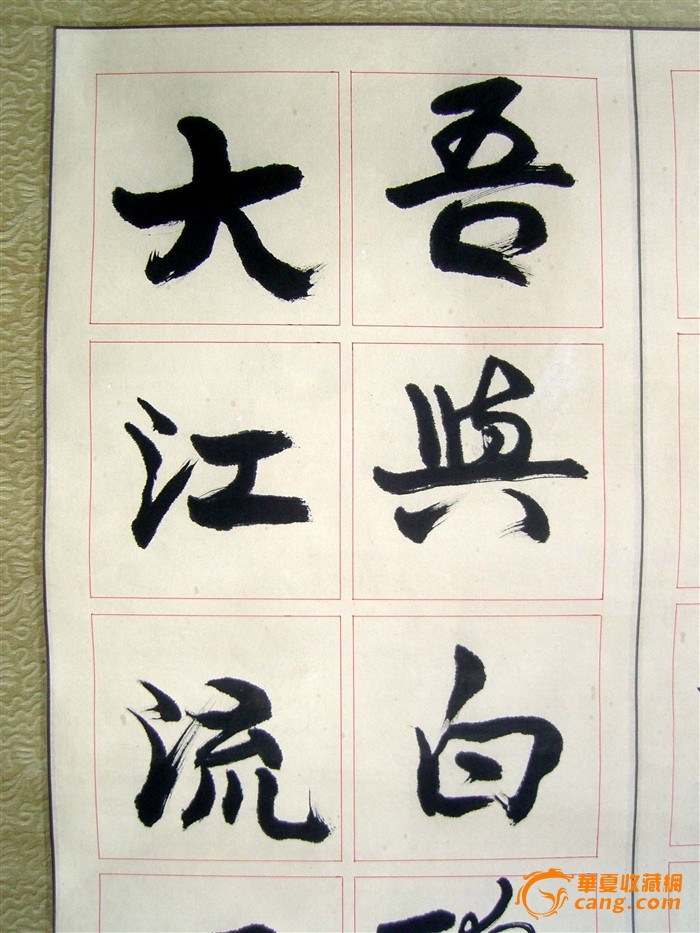 吾與白
大江流
華夏收藏網
cang.com